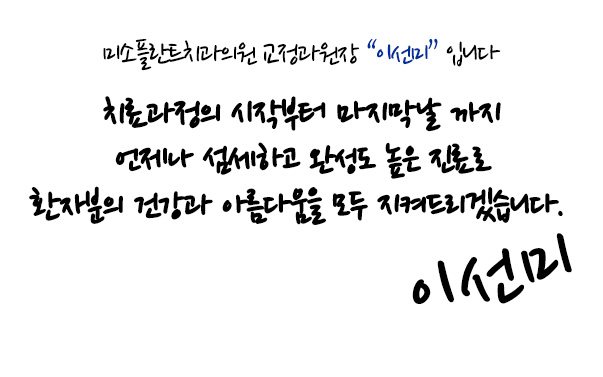 미소플란트치과의원 교정과원장 “이선미” 입니다
치료과정의 시작부터 마지막날 까지
언제나 섬세하고 완성도 높은 진료로
환자분의 건강과 아름다움을 모두 지켜드리겠습니다.
이선미